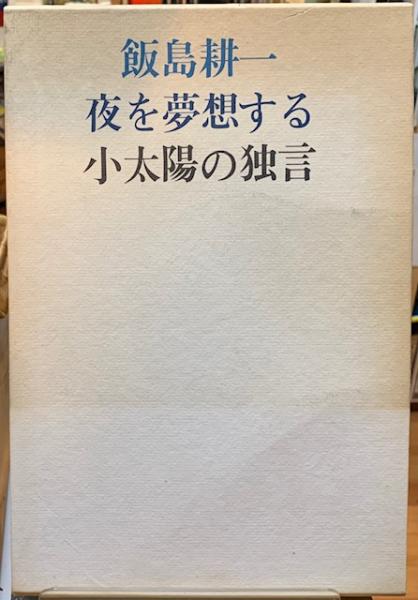 飯島耕一
夜を夢想する
小太陽の独言